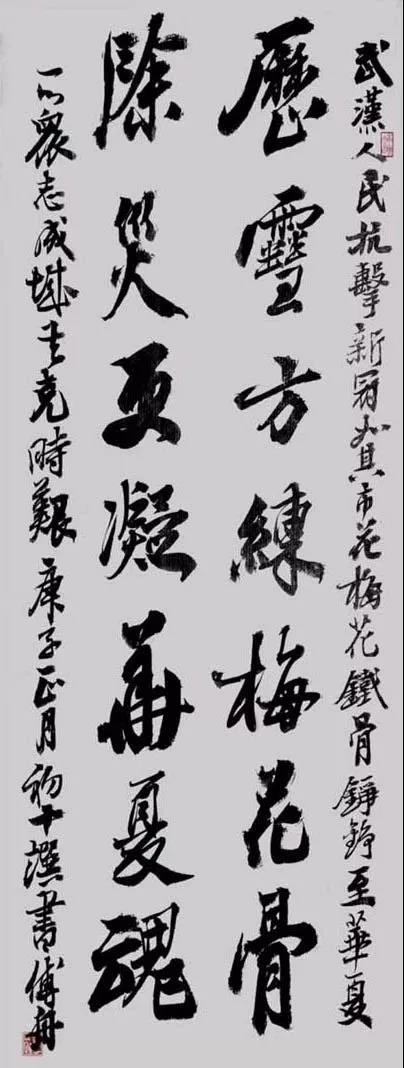 武漢人民抗擊新冠如其市花梅花鐵骨錚錚至華夏
歷方練梅花骨
除災更凝華夏魂
一心眾志成城共克時艱庚子正月初十撰書傅舟